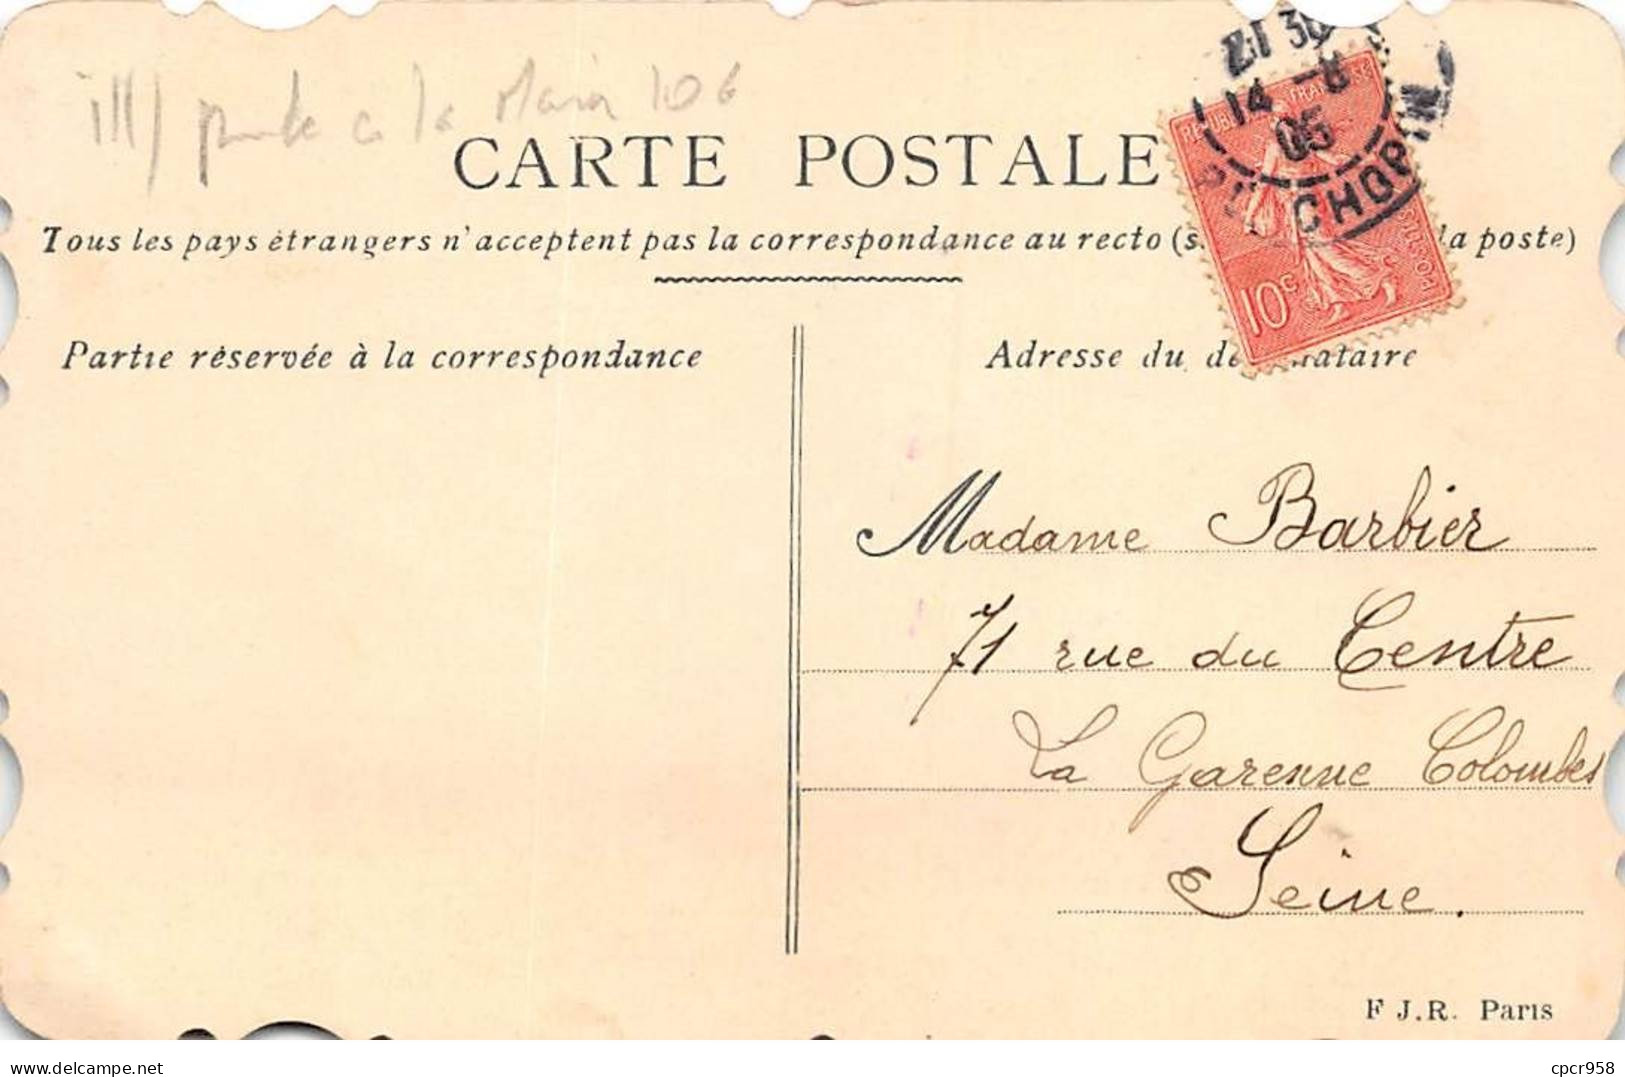 ill) peinte à la Main 10€
CARTE POSTALE
Tous les pays étrangers n'acceptent pas la correspondance au recto (s. la poste)
Partie réservée à la correspondance
Adresse du de nataire
21 30
14 -8
05
CHOPIN
REPUBLIQUE FRANÇAISE
POSTES
10c
Madame Barbier
71 rue du Centre
La Garenne Colombes
Seine.
F J.R. Paris
delcampe.net
cpcr958